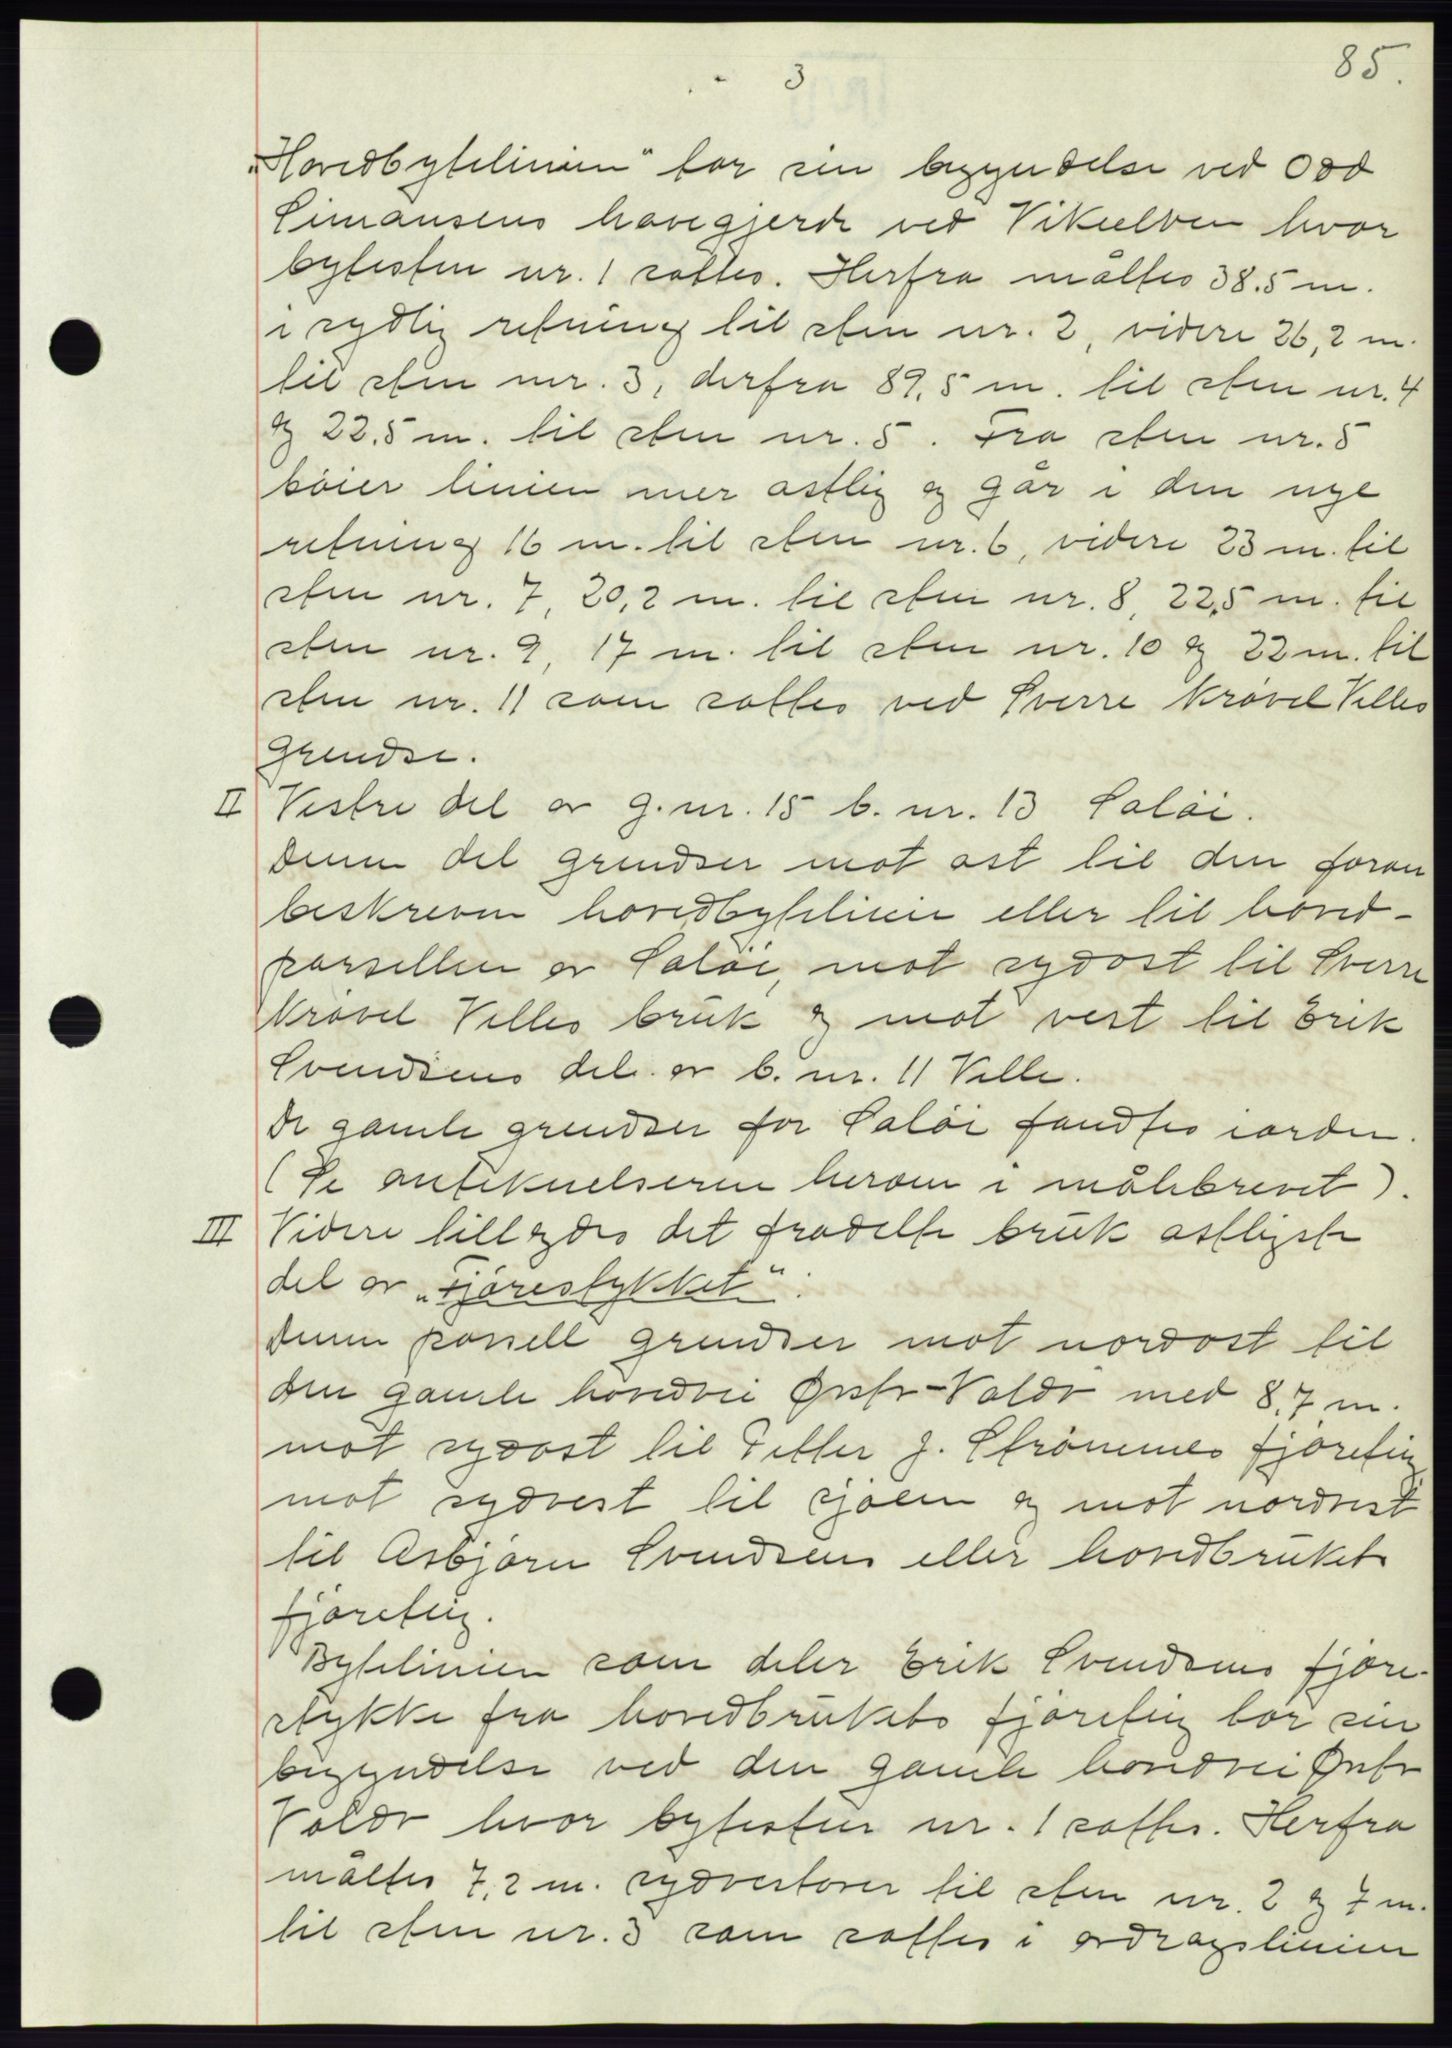 85.
- 3
„Hovedbytelinien“ tar sin begyndelse ved Odd
Simonsens havegjerde ved Vikeelven hvor
bytesten nr. 1 sattes. Herfra måltes 38.5 m.
i sydlig retning til sten nr. 2, videre 26,2 m.
til sten nr. 3, derfra 89,5 m. til sten nr. 4
og 22.5 m. til sten nr. 5. Fra sten nr. 5
bøier linien mer østlig og går i den nye
retning 16 m. til sten nr. 6, videre 23 m. til
sten nr. 7, 20,2 m. til sten nr. 8, 22,5 m. til
sten nr. 9, 17 m. til sten nr. 10 og 22 m. til
sten nr. 11 som sattes ved Sverre Krøvel Velles
grendse.
II Vestre del av g. nr. 15 b. nr. 13 Saløi.
Denne del grendser mot øst til den foran
beskreven hovedbytelinie eller til hoved-
parsellen av Saløi, mot sydøst til Sverre
Krøvel Velles bruk og mot vest til Erik
Svendsens del av b. nr. 11 Velle.
De gamle grendser for Saløi fandtes iorden.
(Se anteknelserne herom i målebrevet).
III Videre tillegdes det fradelte bruk østligste
del av „Fjørestykket“:
Denne parsell grendser mot nordøst til
den gamle hovedvei Ørsta-Volda med 8,7 m.
mot sydøst til Petter J. Strømmes fjøreteig,
mot sydvest til sjøen og mot nordvest
til Asbjørn Svendsens eller hovedbrukets
fjøreteig.
Bytelinien som deler Erik Svendsens fjøre-
stykke fra hovedbrukets fjøreteig tar sin
begyndelse ved den gamle hovedvei Ørsta
Volda hvor bytesten nr. 1 sattes. Herfra
måltes 7,2 m. sydvestover til sten nr. 2 og 7 m.
til sten nr. 3 som sattes i avdragslinien